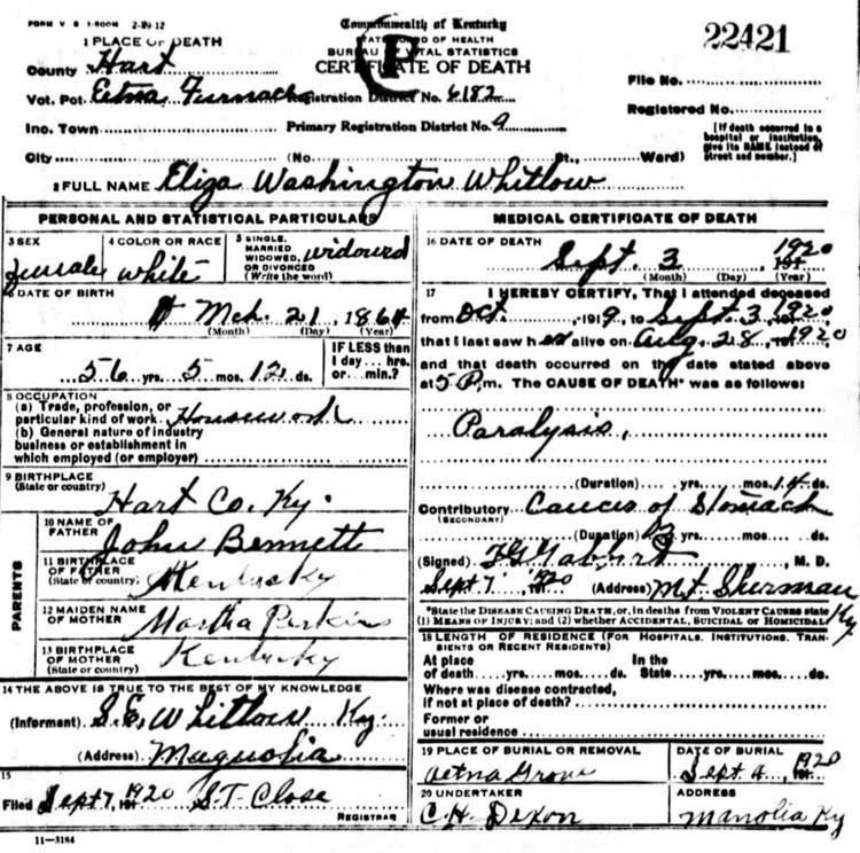 FORM V S 1-500M 2-29-12
Commonwealth of Kentucky
STATE BOARD OF HEALTH
BUREAU OF VITAL STATISTICS
CERTIFICATE OF DEATH
22421
1 PLACE OF DEATH
County Hart
Vot. Pct. Etna Furnace Registration District No. 6182
Inc. Town Primary Registration District No. 9
City (No. St., Ward)
File No.
Registered No.
[If death occurred in a
hospital or institution,
give its NAME instead of
street and number.]
2 FULL NAME Eliza Washington Whitlow
PERSONAL AND STATISTICAL PARTICULARS
3 SEX
female
4 COLOR OR RACE
white
5 SINGLE,
MARRIED
WIDOWED, widowed
OR DIVORCED
(Write the word)
6 DATE OF BIRTH
Mch. 21, 1864
(Month) (Day) (Year)
7 AGE
56 yrs. 5 mos. 12 ds.
IF LESS than
1 day... hrs.
or... min.?
8 OCCUPATION
(a) Trade, profession, or
particular kind of work Housework
(b) General nature of industry
business or establishment in
which employed (or employer)
9 BIRTHPLACE
(State or country)
Hart Co. Ky.
PARENTS
10 NAME OF
FATHER
John Bennett
11 BIRTHPLACE
OF FATHER
(State or country)
Kentucky
12 MAIDEN NAME
OF MOTHER
Martha Perkins
13 BIRTHPLACE
OF MOTHER
(State or country)
Kentucky
14 THE ABOVE IS TRUE TO THE BEST OF MY KNOWLEDGE
(Informant) S.E. Whitlow Ky.
(Address) Magnolia
15
Filed Sept 7, 191 1920 S.T. Close
REGISTRAR
11-3184
MEDICAL CERTIFICATE OF DEATH
16 DATE OF DEATH
Sept. 3 1920 191
(Month) (Day) (Year)
17 I HEREBY CERTIFY, That I attended deceased
from Oct, 1919, to Sept 3, 1920
that I last saw her alive on Aug. 28, 1920
and that death occurred on the date stated above
at 5 P.m. The CAUSE OF DEATH* was as follows:
Paralysis,
(Duration) yrs. mos. 14 ds.
Contributory Cancer of Stomach
(SECONDARY)
(Duration) yrs. mos. ds.
(Signed) M. D.
Sept 7, 1920 (Address) Mt. Sherman
Ky
*State the DISEASE CAUSING DEATH, or, in deaths from VIOLENT CAUSES state
(1) MEANS OF INJURY; and (2) whether ACCIDENTAL, SUICIDAL or HOMICIDAL
18 LENGTH OF RESIDENCE (FOR HOSPITALS, INSTITUTIONS, TRAN-
SIENTS OR RECENT RESIDENTS)
At place In the
of death.....yrs.....mos.....ds. State.....yrs.....mos.....ds.
Where was disease contracted,
if not at place of death?
Former or
usual residence
19 PLACE OF BURIAL OR REMOVAL
Aetna Grove
DATE OF BURIAL
Sept. 4, 1920 191
20 UNDERTAKER
C.H. Dixon
ADDRESS
Manolia Ky